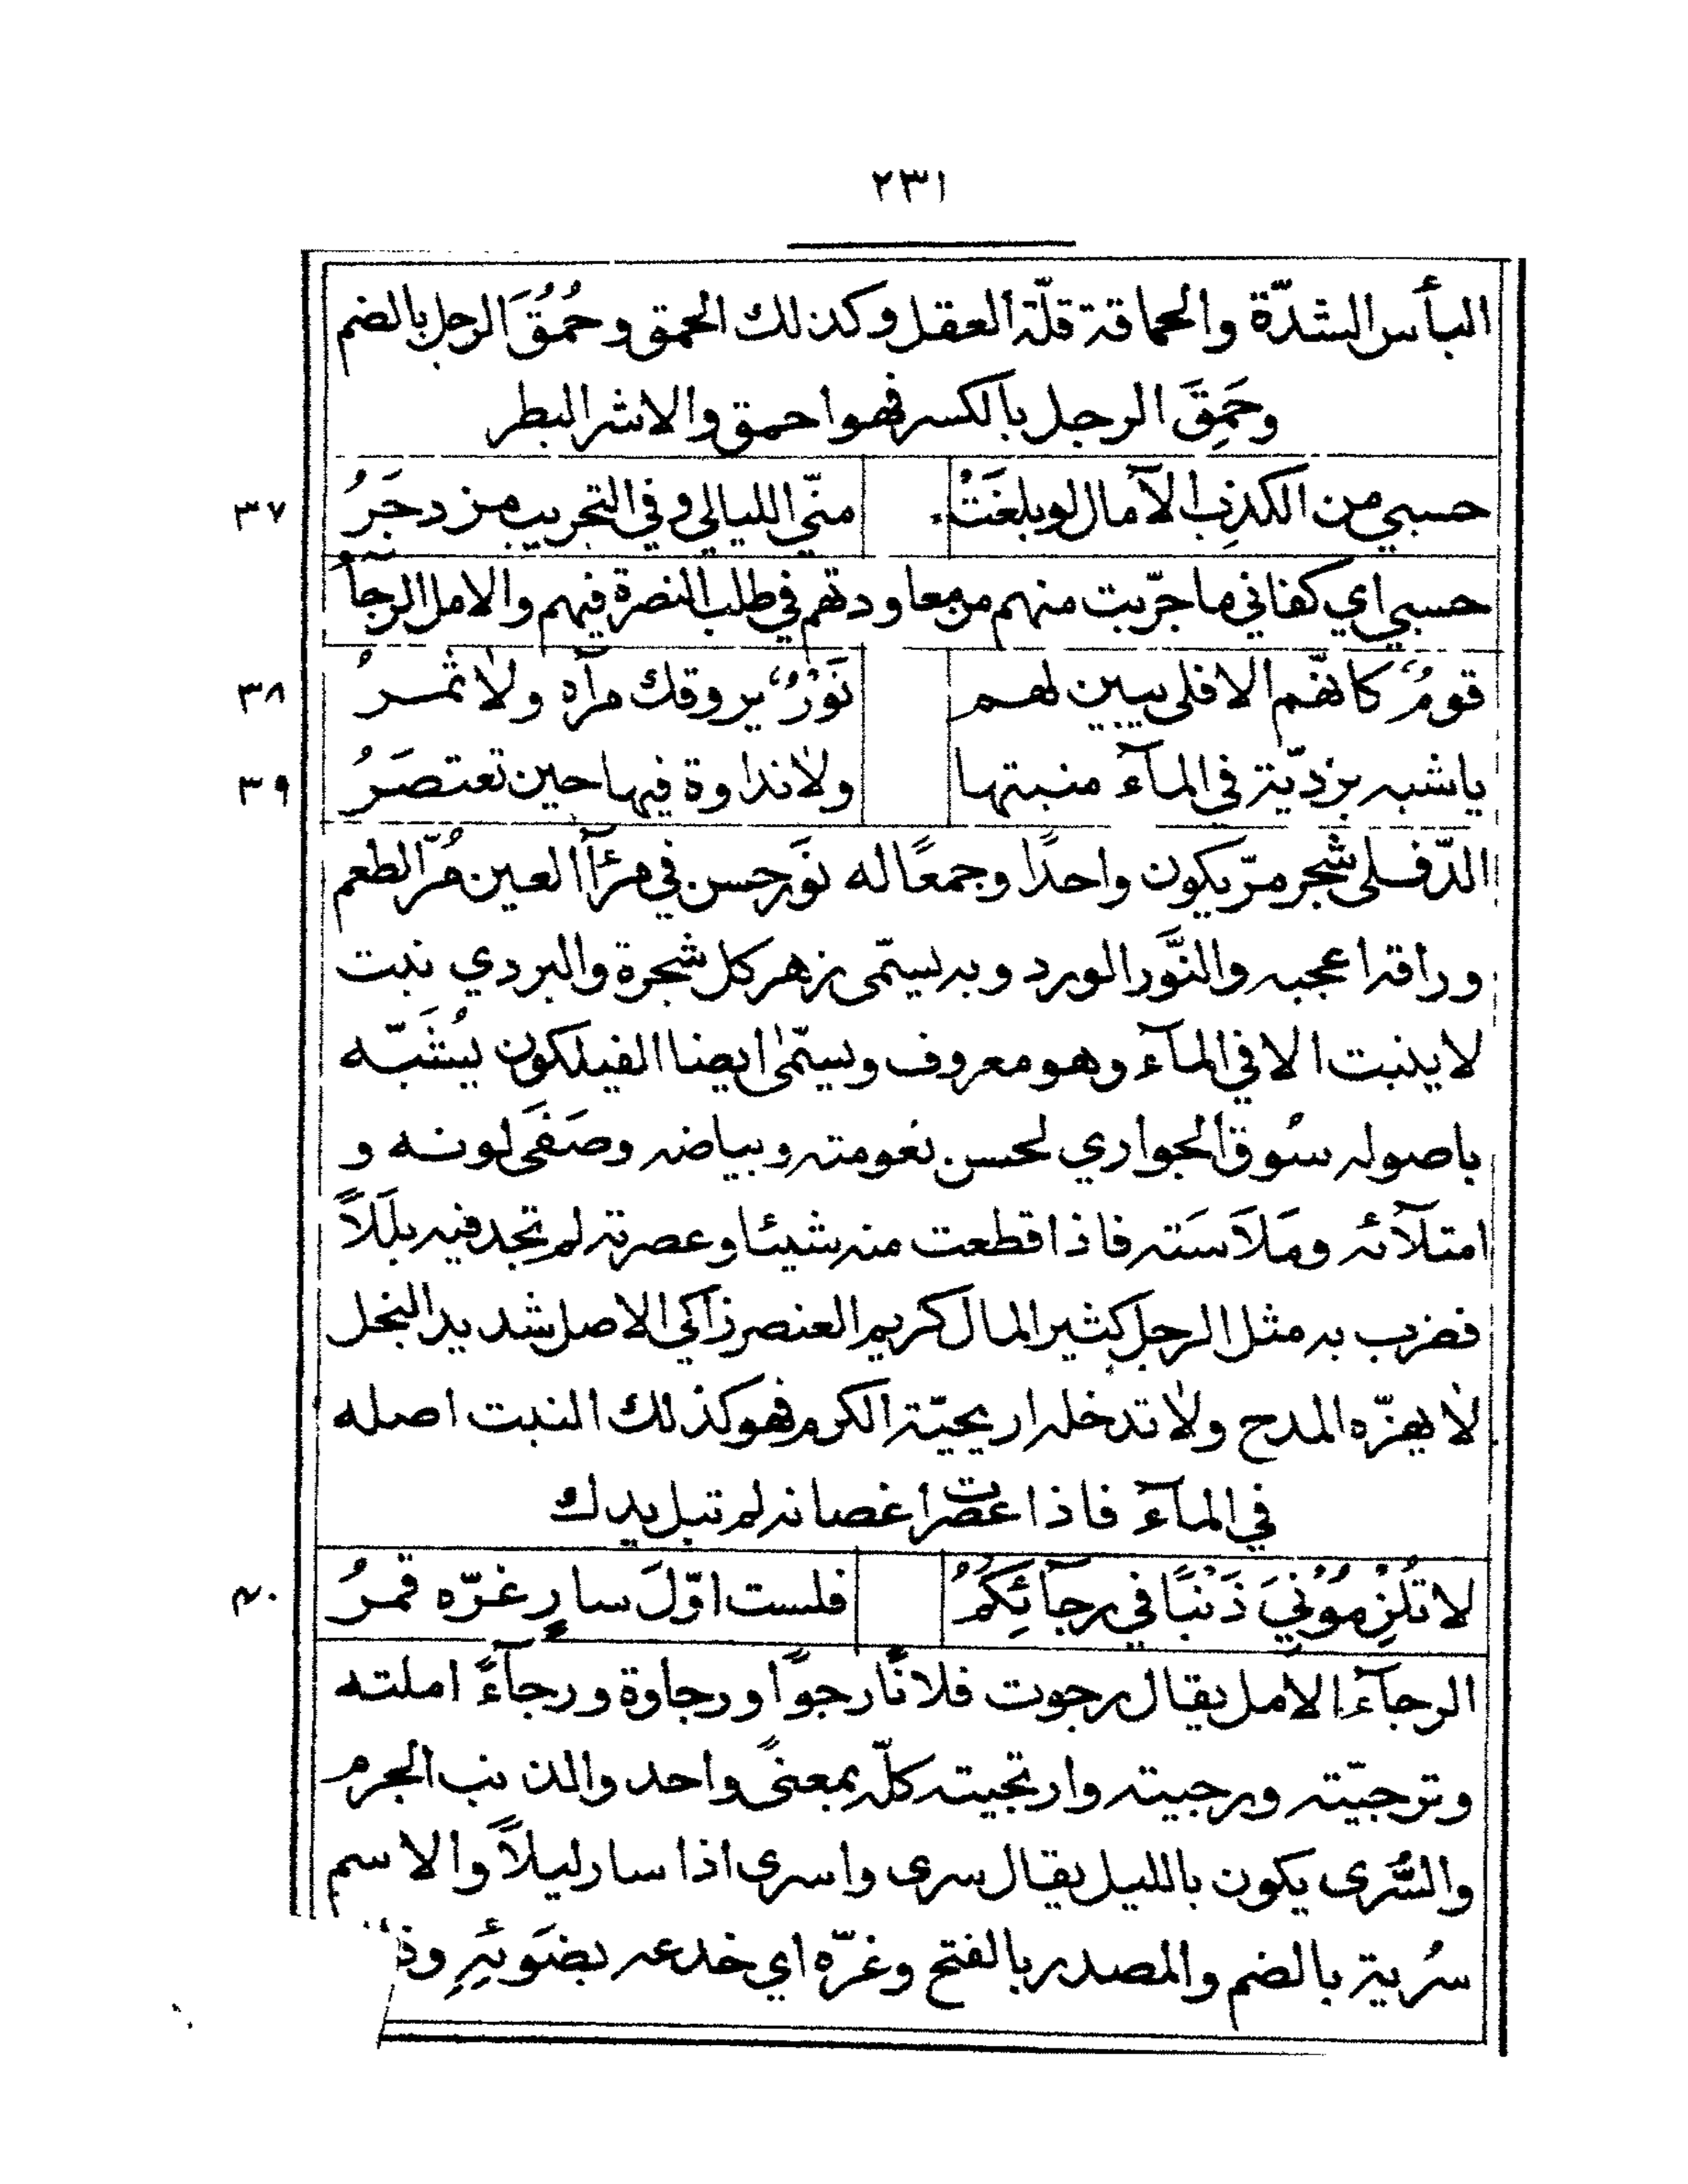 ٢٣١
البأس الشدّة والحماقة قلّة العقل وكذلك الحمق وحُمُقَ الرجل بالضم
وحَمِقَ الرجل بالكسر فهو احمق والاشر البطر
حسبي من الكذِب الآمال لو بلغَتْ منّي الليالي وفي التجريب مزدجَرُ ٣٧
حسبي اي كفاني ما جرّبت منهم من معاودتهم في طلب النصرة فيهم والامل الرجآء
قومٌ كانهّم الافلى يبين لهم نَوْرٌ يروقك مرآه ولا ثمرُ ٣٨
يا شبه بردّية في المآء منبتها ولا نداوة فيها حين تعتصَرُ ٣٩
الدّفلى شجر مرّ يكون واحدًا وجمعًا له نَور حسن في مرئآ العين مُرّ الطعم
وراقه اعجبه والنَّور الورد وبه يسمّى زهر كل شجرة والبردي نبت
لا ينبت الا في المآء وهو معروف ويسمّى ايضا الفيلكون يُشَبّه
باصوله سُوق الجواري لحسن نعومته وبياضه وصَفَى لونه و
امتلآئه ومَلاَسَته فاذا قطعت منه شيئا وعصرته لم تجد فيه بلَلاً
فضرب به مثل الرجل كثير المال كريم العنصر زاكي الاصل شديد البخل
لا يهزّه المدح ولا تدخله اريحيّة الكرم فهو كذلك النبت اصله
في المآء فاذا عصرت اغصانه لم تبل يدك
لا تُلْزِمُوْنيَ ذَنْبًا في رجآئِكُمُ فلست اوّلَ سارٍ غرّه قمرُ ٤٠
الرجآء الامل يقال رجوت فلانًا رجوًا ورجاوة ورجآءً املته
وترجيّته ورجيته وارتجيته كلّه بمعنىً واحد والذنب الجرم
والسُّرى يكون بالليل يقال سرى واسرى اذا سار ليلاً والاسم
سُرية بالضم والمصدر بالفتح وغرّه اي خدعه بضَوئهِ